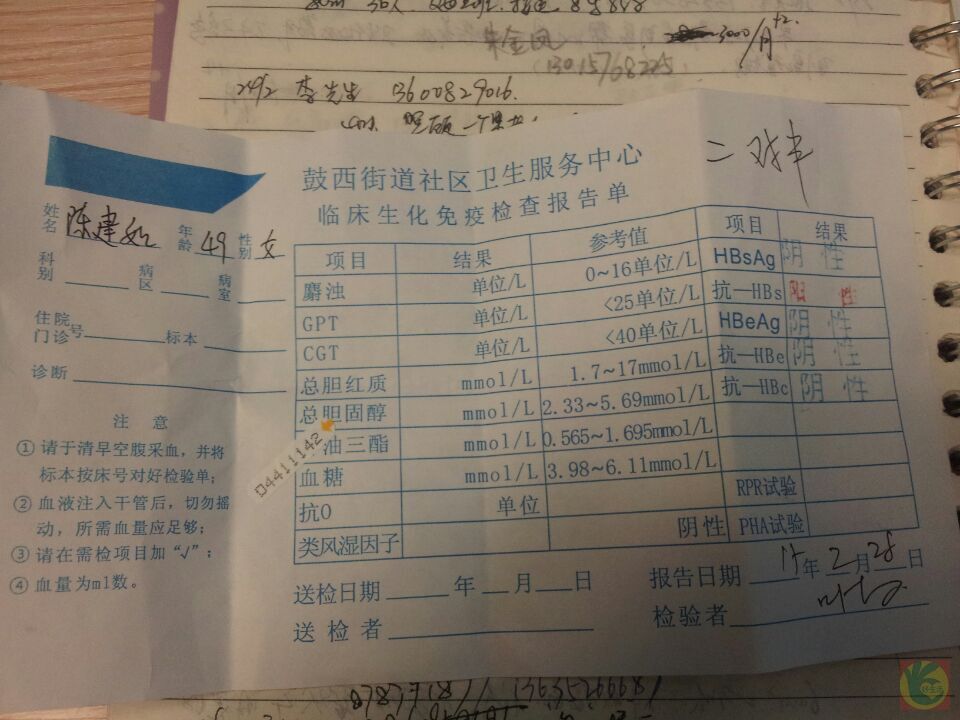 朱金凤
3000/月
13015768225
2492 李先生 13600829016.
二对半
鼓西街道社区卫生服务中心
临床生化免疫检查报告单
姓名 陈建 年龄 49 性别 女
科别 病区 病室
住院门诊号 标本
诊断
注 意
① 请于清早空腹采血，并将
标本按床号对好检验单；
② 血液注入干管后，切勿摇
动，所需血量应足够；
③ 请在需检项目加“√”；
④ 血量为ml数。
项目 结果 参考值 项目 结果
麝浊 单位/L 0~16单位/L HBsAg 阴性
GPT 单位/L <25单位/L 抗—HBs 阳性
CGT 单位/L <40单位/L HBeAg 阴性
总胆红质 mmol/L 1.7~17mmol/L 抗—HBe 阴性
总胆固醇 mmol/L 2.33~5.69mmol/L 抗—HBc 阴性
油三酯 mmol/L 0.565~1.695mmol/L
血糖 mmol/L 3.98~6.11mmol/L
抗O 单位 RPR试验
类风湿因子 阴性 PHA试验
04411142
送检日期 年 月 日 报告日期 14年2月28日
送检者 检验者
13635266681